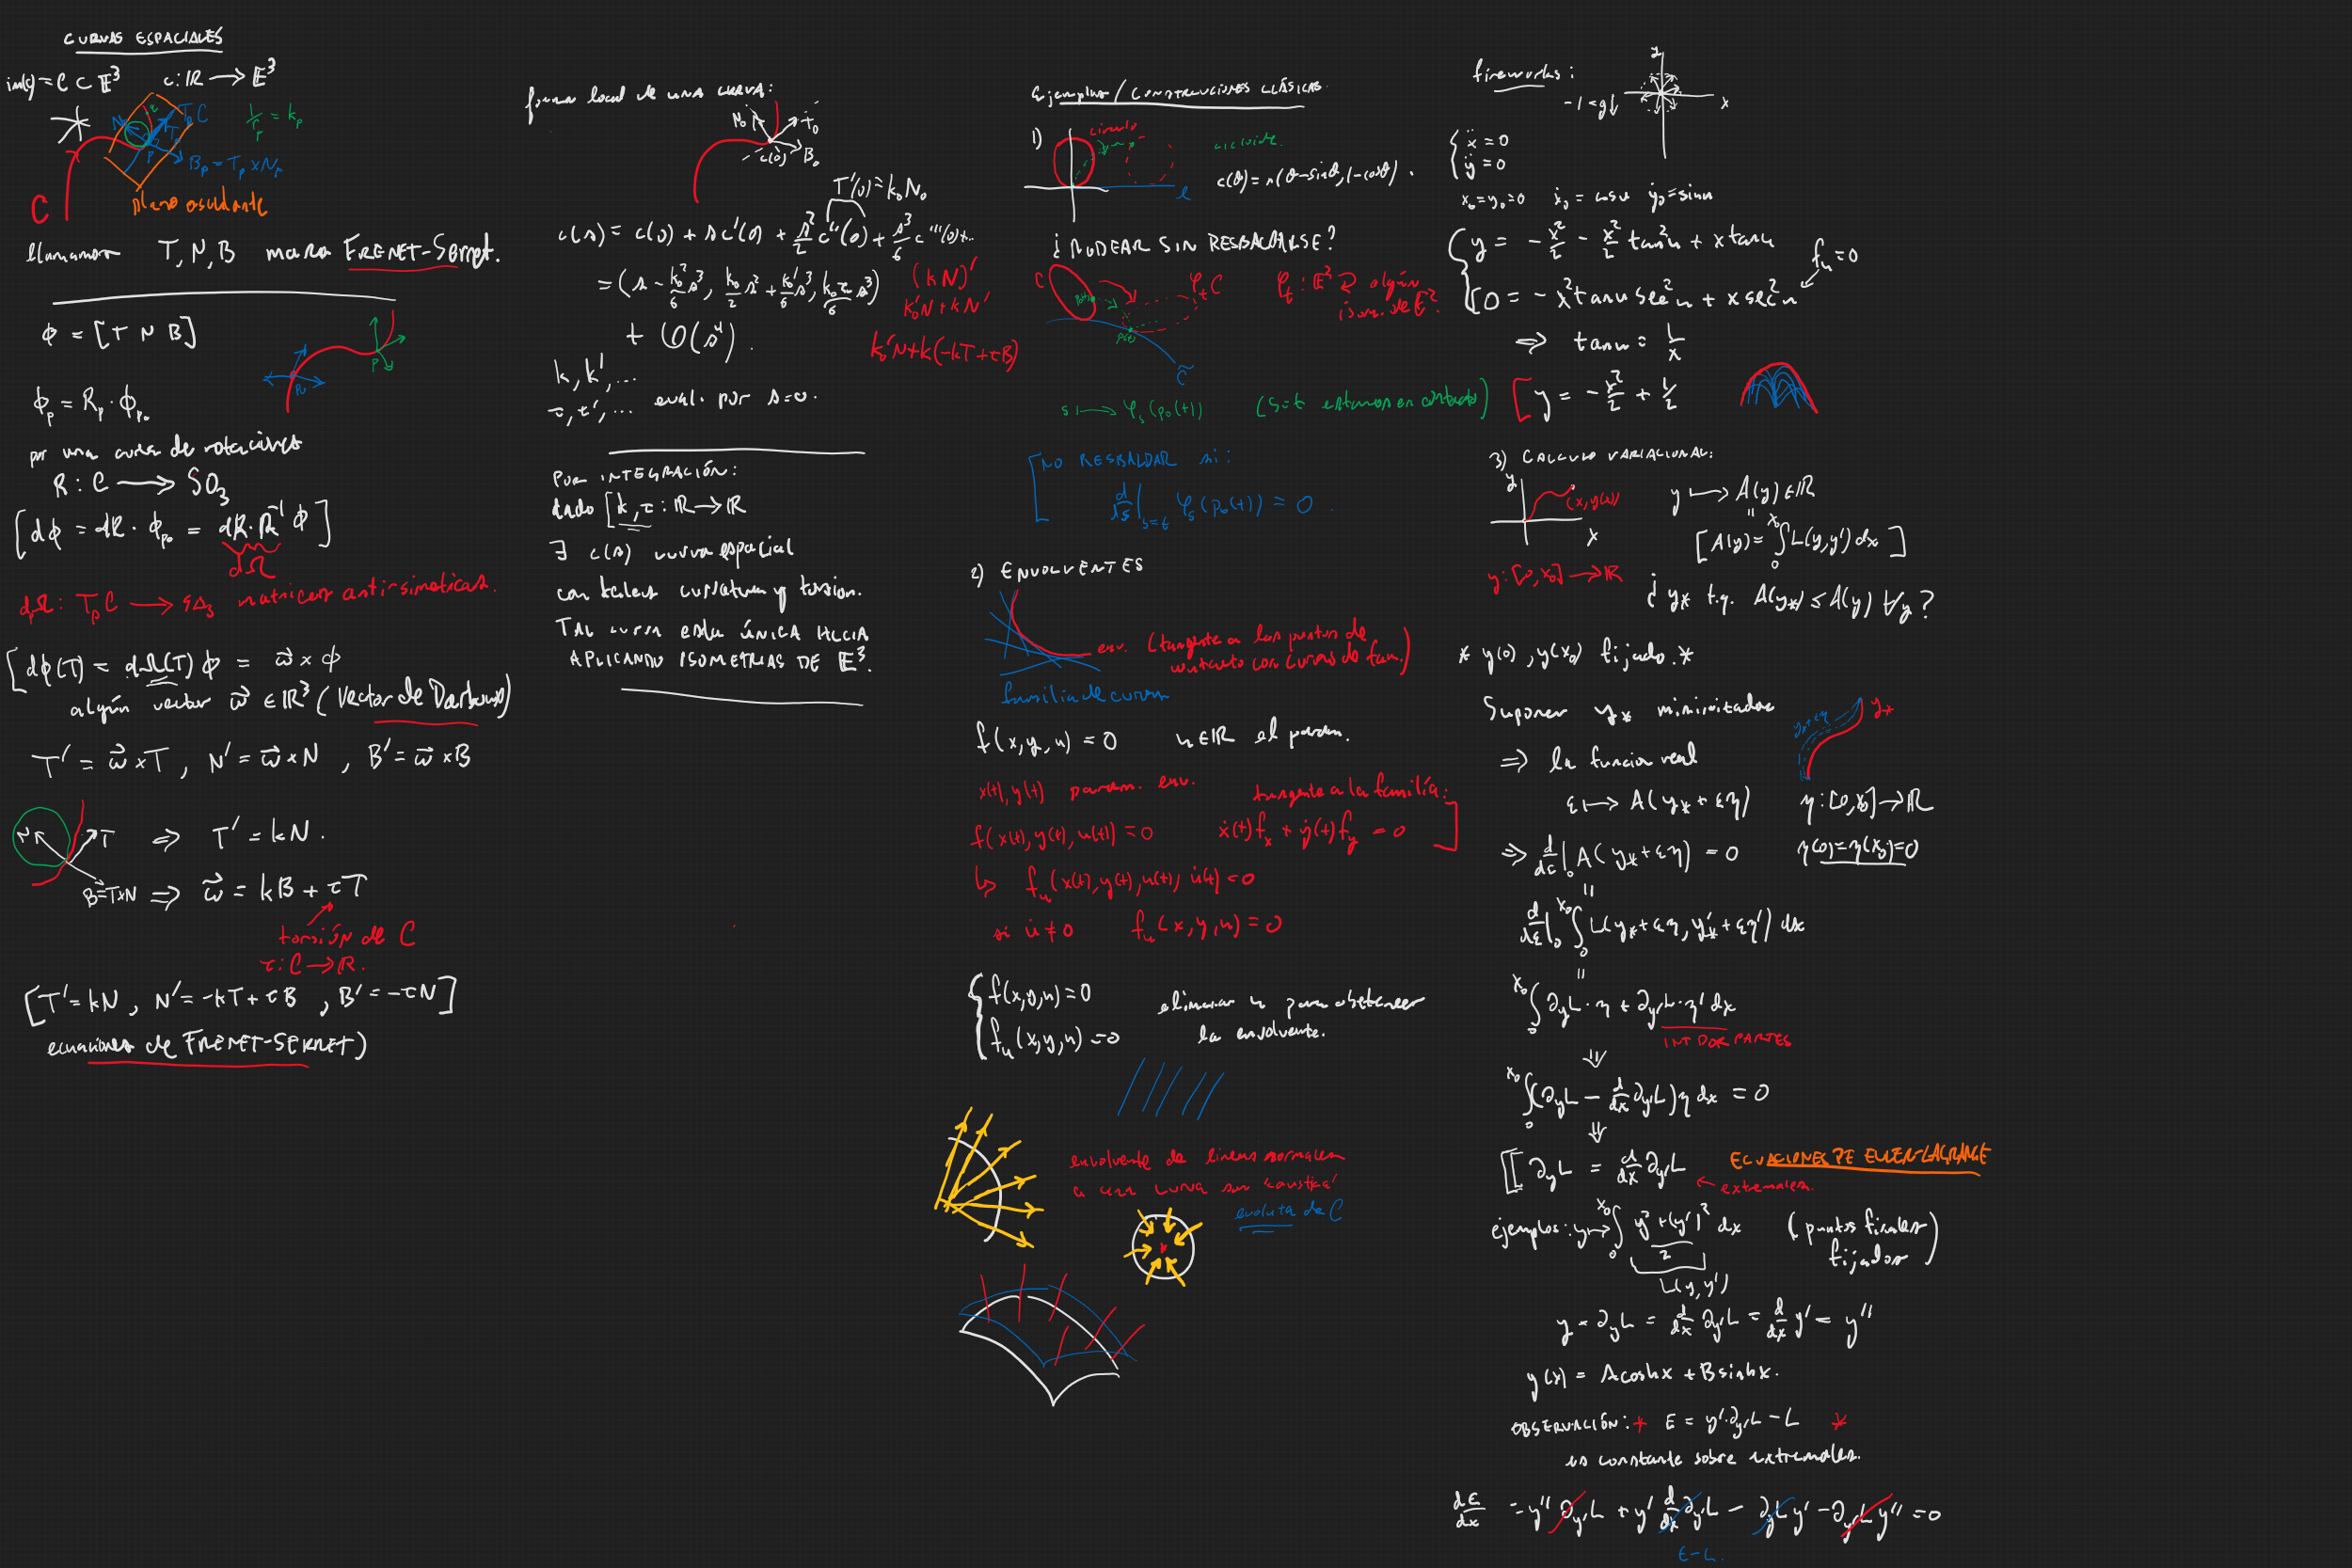 CURVAS ESPACIALES
im(c) = C ⊂ E³   c: R → E³
N   T_p   T_pC   1/r_p = k_p
p   B_p = T_p × N_p
C   plano osculante
llamamos T, N, B marco FRENET-Serret.
ϕ = [T N B]
p₀   p
ϕ_p = R_p · ϕ_p₀
por una curva de rotaciones
R : C → SO₃
[dϕ = dR · ϕ_p₀ = dR · R⁻¹ ϕ]
dΩ
d_pΩ : T_pC → so₃ matrices antisimeticas.
[dϕ(T) = dΩ(T) ϕ = ω⃗ × ϕ
algún vector ω⃗ ∈ R³ (Vector de Darboux)
T' = ω⃗ × T , N' = ω⃗ × N , B' = ω⃗ × B
N   T   ⇒ T' = kN.
B = T×N ⇒ ω⃗ = kB + τT
torsión de C
τ: C → R.
[T' = kN , N' = -kT + τB , B' = -τN]
ecuaciones de FRENET-SERRET)
forma local de una curva:
N₀   T₀
c(0)   B₀
T'(0) = k₀N₀
c(s) = c(0) + s c'(0) + s²/2 c''(0) + s³/6 c'''(0) + ...
= (s - k₀²/6 s³, k₀/2 s² + k₀'/6 s³, k₀τ₀/6 s³)
(kN)'
k₀'N + kN'
+ O(s⁴).
k₀'N + k(-kT + τB)
k, k', ...
τ, τ', ... eval. por s=0.
POR INTEGRACIÓN:
dado [k, τ : R → R
∃ c(s) curva espacial
con tales curvatura y torsion.
TAL curva esta ÚNICA HACIA
APLICANDO ISOMETRIAS DE E³.
Ejemplos / CONSTRUCCIONES CLÁSICAS
1)   circulo   cicloide.
ℓ   c(θ) = r(θ - sinθ, 1 - cosθ).
¿RODEAR SIN RESBALARSE?
C   p₀(t)   φ_t C   φ_t : E² ⟲ algún
isom. de E².
p(t)
C̃
s ↦ φ_s(p₀(t))   (s=t estamos en contacto)
[NO RESBALDAR si:
d/ds|_{s=t} φ_s(p₀(t)) = 0.
2) ENVOLVENTES
env. (tangente a los puntos de
contacto con curvas de fam.)
familia de curvas
f(x,y,u) = 0   u∈R el param.
x(t), y(t) param. env.   tangente a la família:
f(x(t), y(t), u(t)) = 0   ẋ(t)f_x + ẏ(t)f_y = 0 ]
↳ f_u(x(t), y(t), u(t)) u̇(t) = 0
si u̇ ≠ 0   f_u(x, y, u) = 0
{ f(x,y,u) = 0   eliminar u para obteneer
f_u(x,y,u) = 0   la envolvente.
envolvente de lineas normales
a una curva son 'caustica'
evoluta de C
fireworks:   y
-1 = g↓   x
{ ẍ = 0
ÿ = 0
x₀ = y₀ = 0   ẋ₀ = cos u   ẏ₀ = sin u
{ y = -x²/2 - x²/2 tan²u + x tan u   f_u = 0
[0 = -x² tan u sec²u + x sec²u
⇒ tan u = 1/x
[y = -x²/2 + 1/2
3) CALCULO VARIACIONAL:
y   (x, y(x))   y ↦ A(y) ∈ R
x   [A(y) = ∫₀^{x₀} L(y, y') dx]
y: [0, x₀] → R
¿ y* t.q. A(y*) ≤ A(y) ∀y ?
* y(0), y(x₀) fijado. *
Suponer y* minimitador   y*+εη   y*
⇒ la funcion real
ε ↦ A(y* + εη)   η: [0, x₀] → R
⇒ d/dε|₀ A(y* + εη) = 0   η(0) = η(x₀) = 0
d/dε|₀ ∫₀^{x₀} L(y* + εη, y*' + εη') dx
∫₀^{x₀} ∂_yL · η + ∂_y'L · η' dx
INT POR PARTES
⇓
∫₀^{x₀} (∂_yL - d/dx ∂_y'L) η dx = 0
⇓
[[ ∂_yL = d/dx ∂_y'L   ECUACIONES DE EULER-LAGRANGE
← extremales.
ejemplos: y ↦ ∫₀^{x₀} (y² + (y')²)/2 dx   (puntos finales
L(y, y')   fijados)
y = ∂_yL = d/dx ∂_y'L = d/dx y' = y''
y(x) = A cosh x + B sinh x.
OBSERVACIÓN: * E = y' · ∂_y'L - L *
es constante sobre extremales.
dE/dx = y'' ∂_y'L + y' d/dx ∂_y'L - ∂_yL y' - ∂_y'L y'' = 0
E-L.